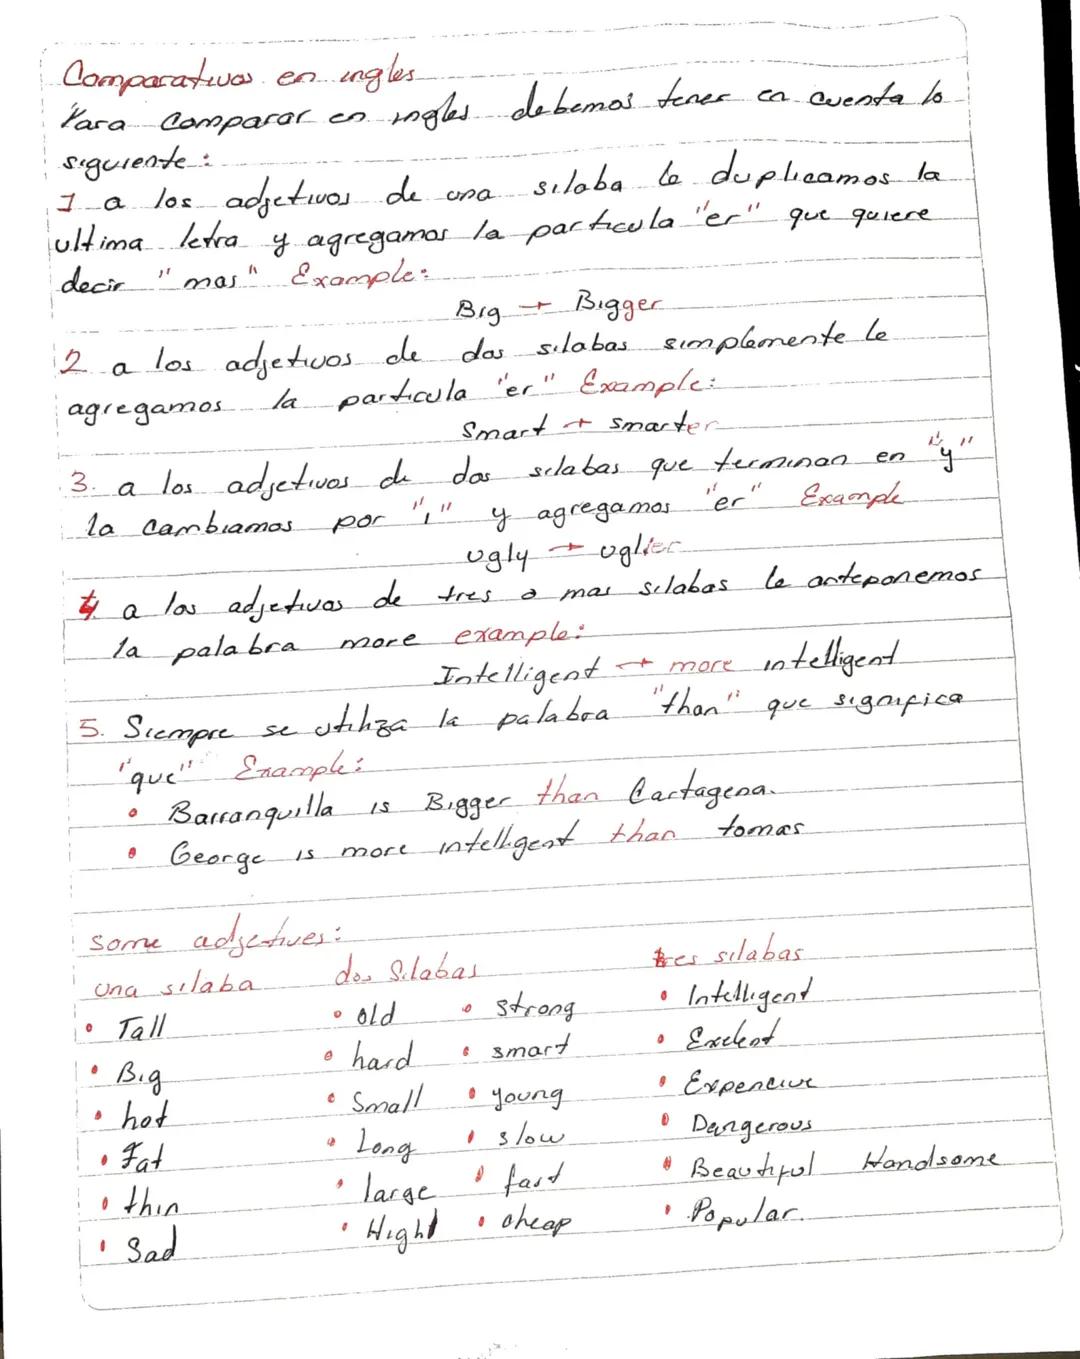 Comparativos en ingles
Para comparar en ingles debemos tener en cuenta lo
siguiente:
1 a los adjetivos de una silaba le duplicamos la
ultima letra y agregamos la particula "er" que quiere
decir "mas" Example:
Big → Bigger
2 a los adjetivos de dos silabas simplemente le
agregamos la particula "er" Example:
Smart → smarter
3. a los adjetivos de dos silabas que terminan en "y"
la cambiamos por "i" y agregamos "er" Example
ugly → uglier
4. a los adjetivos de tres o mas silabas le anteponemos
la palabra more example:
Intelligent → more intelligent
5. Siempre se utiliza la palabra "than" que significa
"que" Example:
• Barranquilla is Bigger than Cartagena.
• George is more intelligent than tomas
some adjectives:
una silaba dos Silabas tres silabas
• Tall • old • strong • Intelligent
• Big • hard • smart • Exelent
• hot • Small • young • Expencive
• Fat • Long • slow • Dangerous
• thin • large • fast • Beautiful Handsome
• Sad • Hight • cheap • Popular.